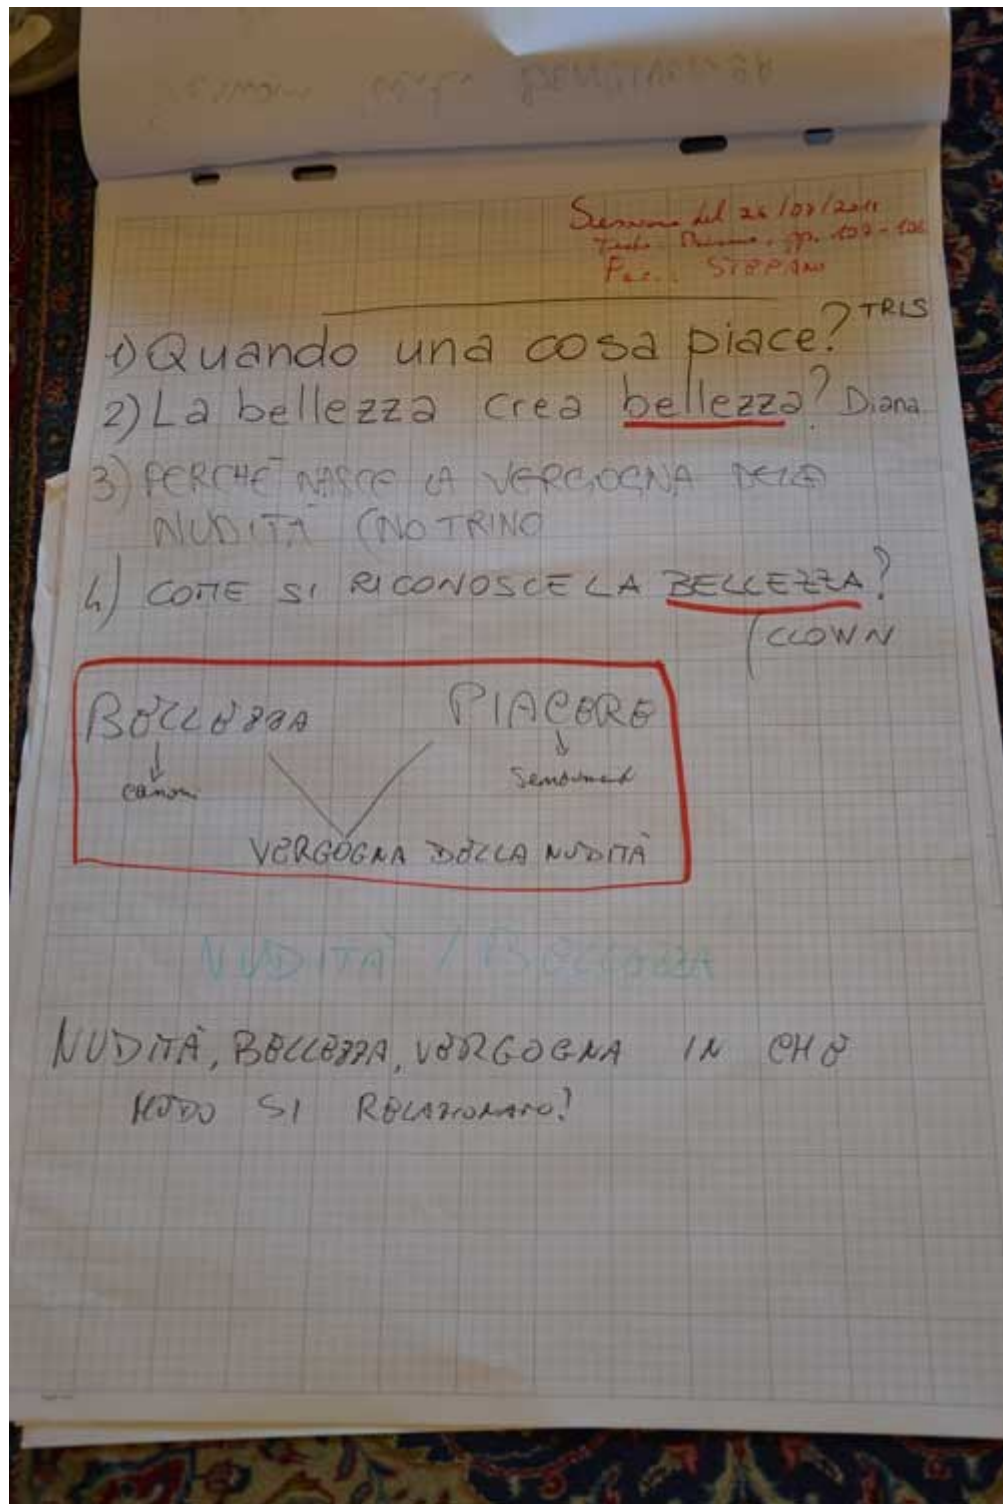 Sessione del 26/07/2011
pp. 107-108
STEFANO
1) Quando una cosa piace? TRIS
2) La bellezza crea bellezza? Diana
3) PERCHÈ NASCE LA VERGOGNA DELLA
NUDITÀ (NOTRINO
4) COME SI RICONOSCE LA BELLEZZA?
(CLOWN
BELLEZZA PIACERE
canoni
VERGOGNA DELLA NUDITÀ
NUDITÀ / BELLEZZA
NUDITÀ, BELLEZZA, VERGOGNA IN CHE
MODO SI RELAZIONANO?